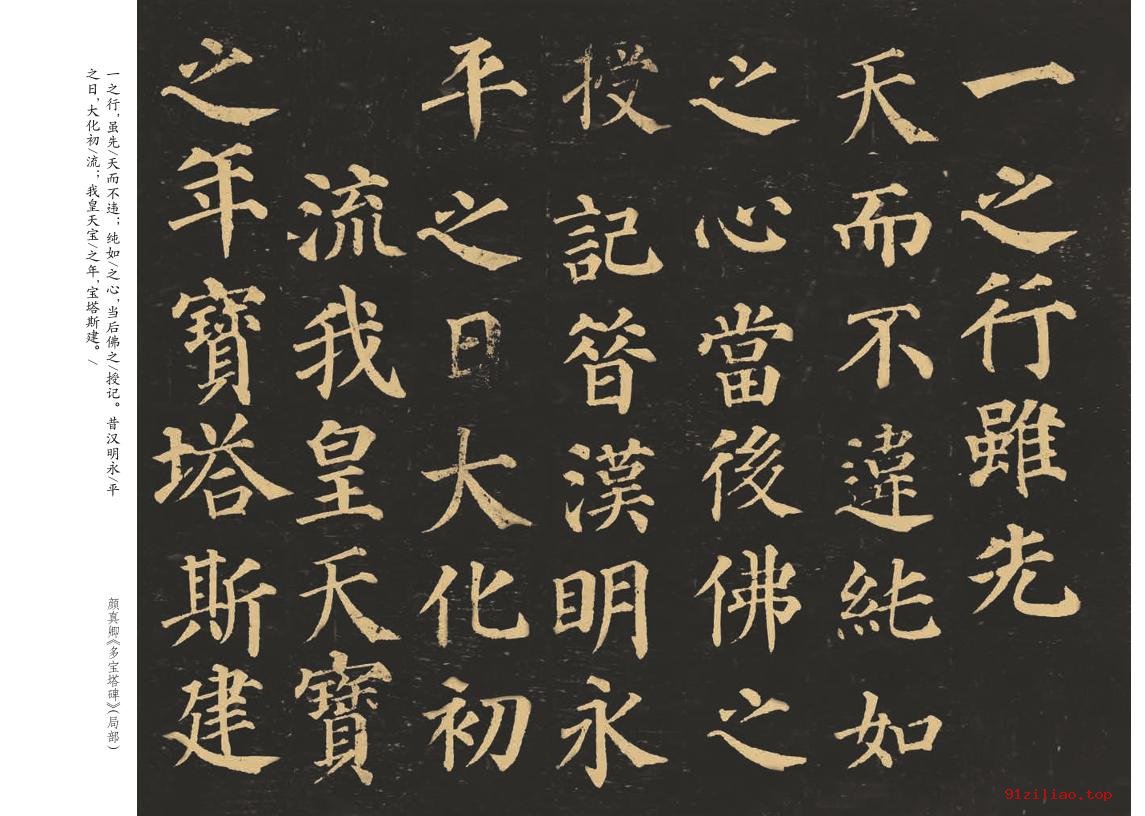 一之行雖先
天而不違純如
之心當後佛之
授記昔漢明永
平之日大化初
流我皇天寶
之年寶塔斯建
一之行，虽先/天而不违；纯如/之心，当后佛之/授记。昔汉明永/平
之日，大化初/流；我皇天宝/之年，宝塔斯建。/
颜真卿《多宝塔碑》（局部）
91ziliao.top